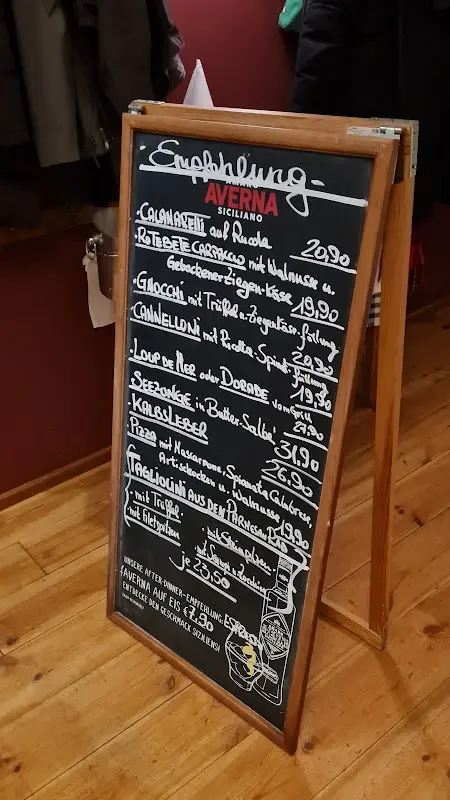 -Empfehlung-
AMARO
AVERNA
SICILIANO
·CALAMARETTI auf Rucola 20,90
·ROTEBETE CARPACCIO mit Walnusse u.
Gebackener Ziegen-Käse 19,90
·GNOCCHI mit Trüffel u. Ziegenkäse-füllung
20,90
·CANNELLONI mit Ricotta-Spinat-füllung
19,90
·LOUP DE MER oder DORADE vom Grill
29,90
·SEEZUNGE in Butter-Salbei 31,90
·KALBSLEBER 26,90
·PIZZA mit Mascarpone, Spianata Calabrese,
Artischocken u. Walnusse 19,90
TAGLIOLINI AUS DEN PARMESAN RAD
·mit Trüffel ·mit Steinpilzen
·mit Filetspitzen
je 23,50
UNSERE AFTER-DINNER-EMPFEHLUNG: ESPRESSO
AVERNA AUF EIS €7,90
ENTDECKE DEN GESCHMACK SIZILIENS!